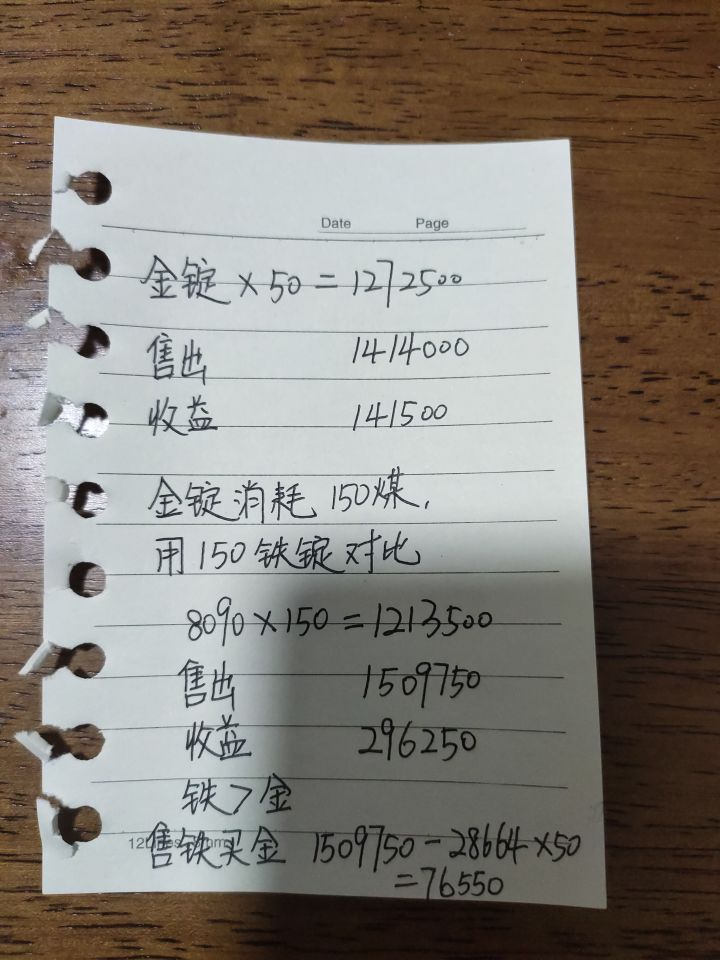 Date Page
金锭×50=1272500
售出 1414000
收益 141500
金锭消耗150煤,
用150铁锭对比
8090×150=1213500
售出 1509750
收益 296250
铁>金
售铁买金 1509750-28664×50
=76550